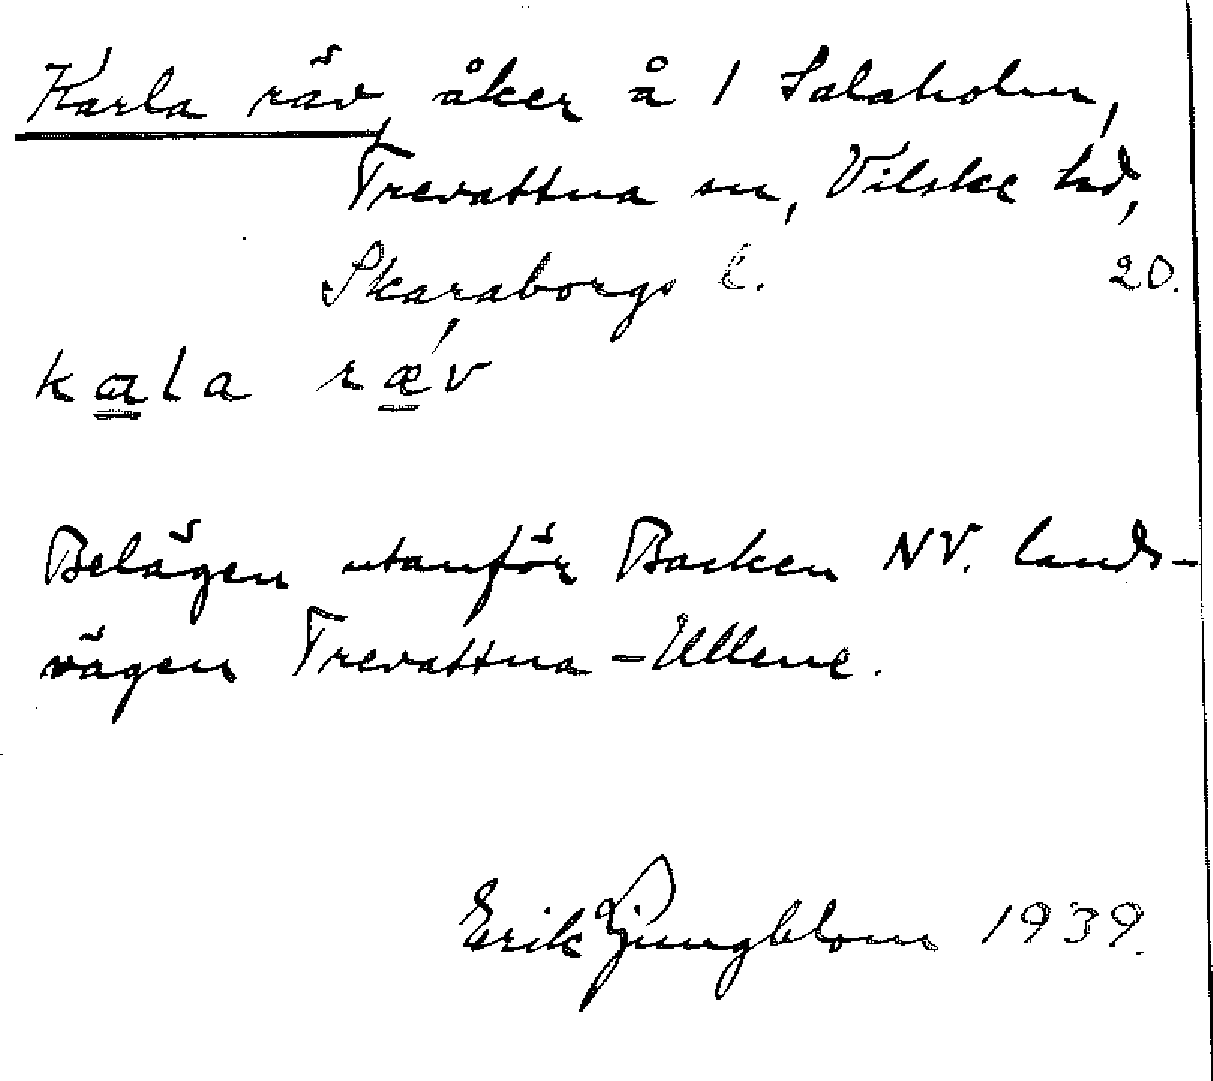 Karla räv, åker å 1 Salaholm,
Trevattna sn, Vilske hd,
Skaraborgs l. 20.
kala ræ´v
Belägen utanför Backen NV. lands-
vägen Trevattna - Ullene.
Erik Ljungblom 1939.